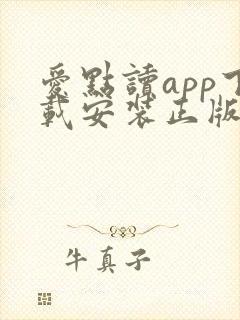 愛點讀app下
載安裝正版
牛真子